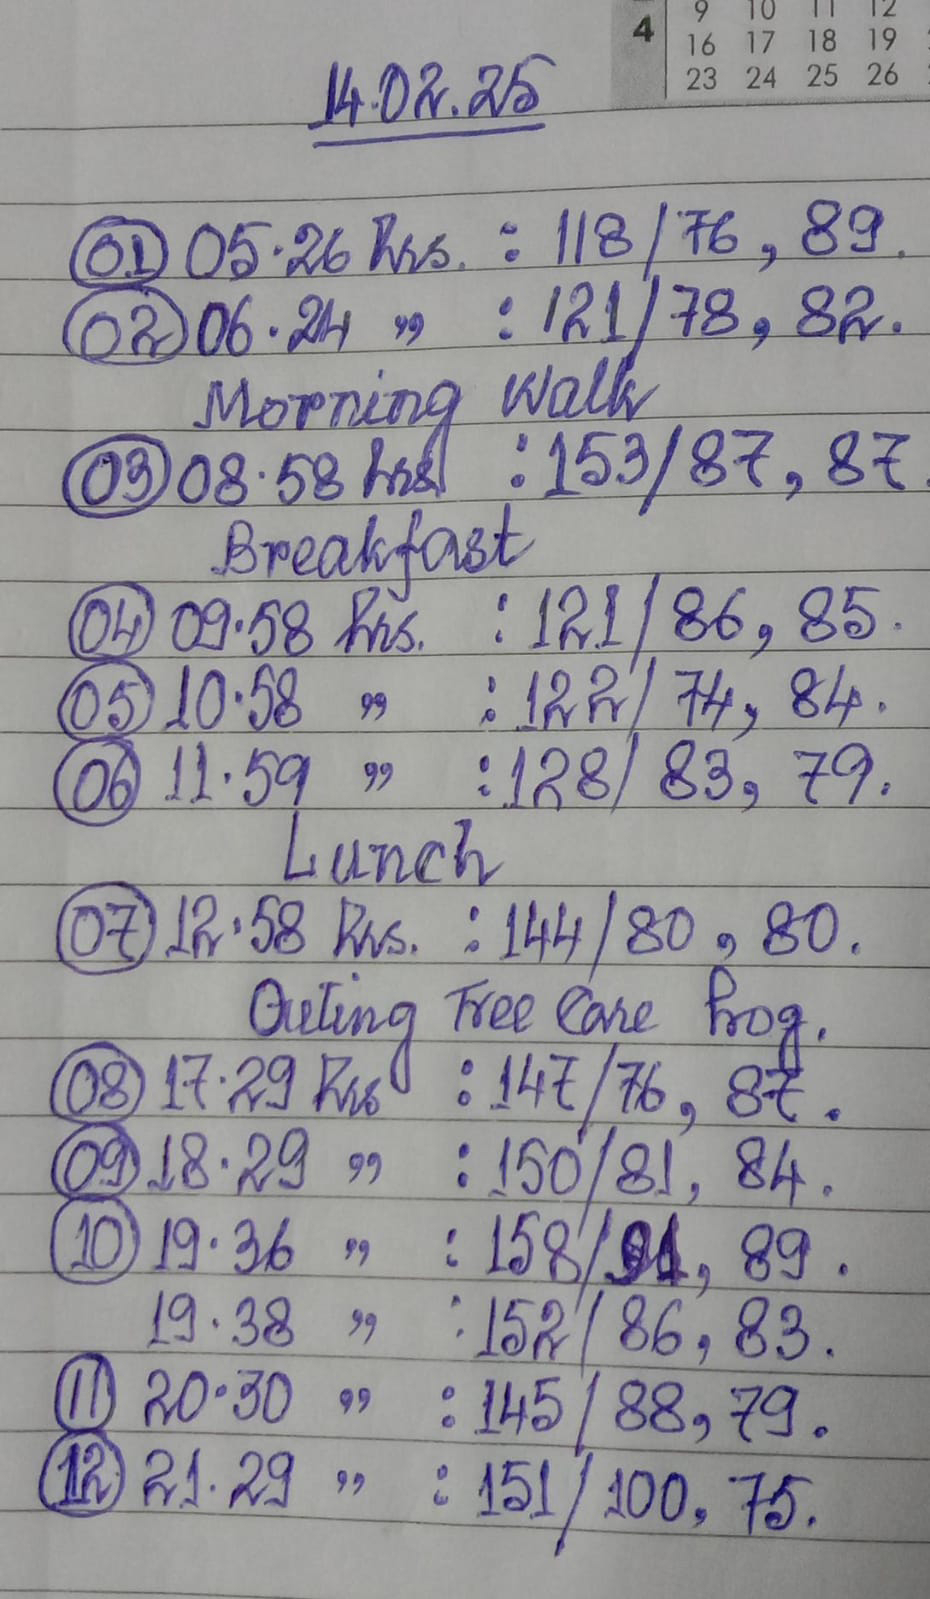 4
9 10 11 12
16 17 18 19
23 24 25 26
14.02.25
01 05.26 hrs. : 118/76, 89.
02 06.24 " : 121/78, 82.
Morning Walk
03 08.58 hrs : 153/87, 87.
Breakfast
04 09.58 hrs. : 121/86, 85.
05 10.58 " : 122/74, 84.
06 11.59 " : 128/83, 79.
Lunch
07 12.58 hrs. : 144/80, 80.
Outing Tree Care Prog.
08 17.29 hrs : 147/76, 87.
09 18.29 " : 150/81, 84.
10 19.36 " : 158/91, 89.
19.38 " : 152/86, 83.
11 20.30 " : 145/88, 79.
12 21.29 " : 151/100, 75.